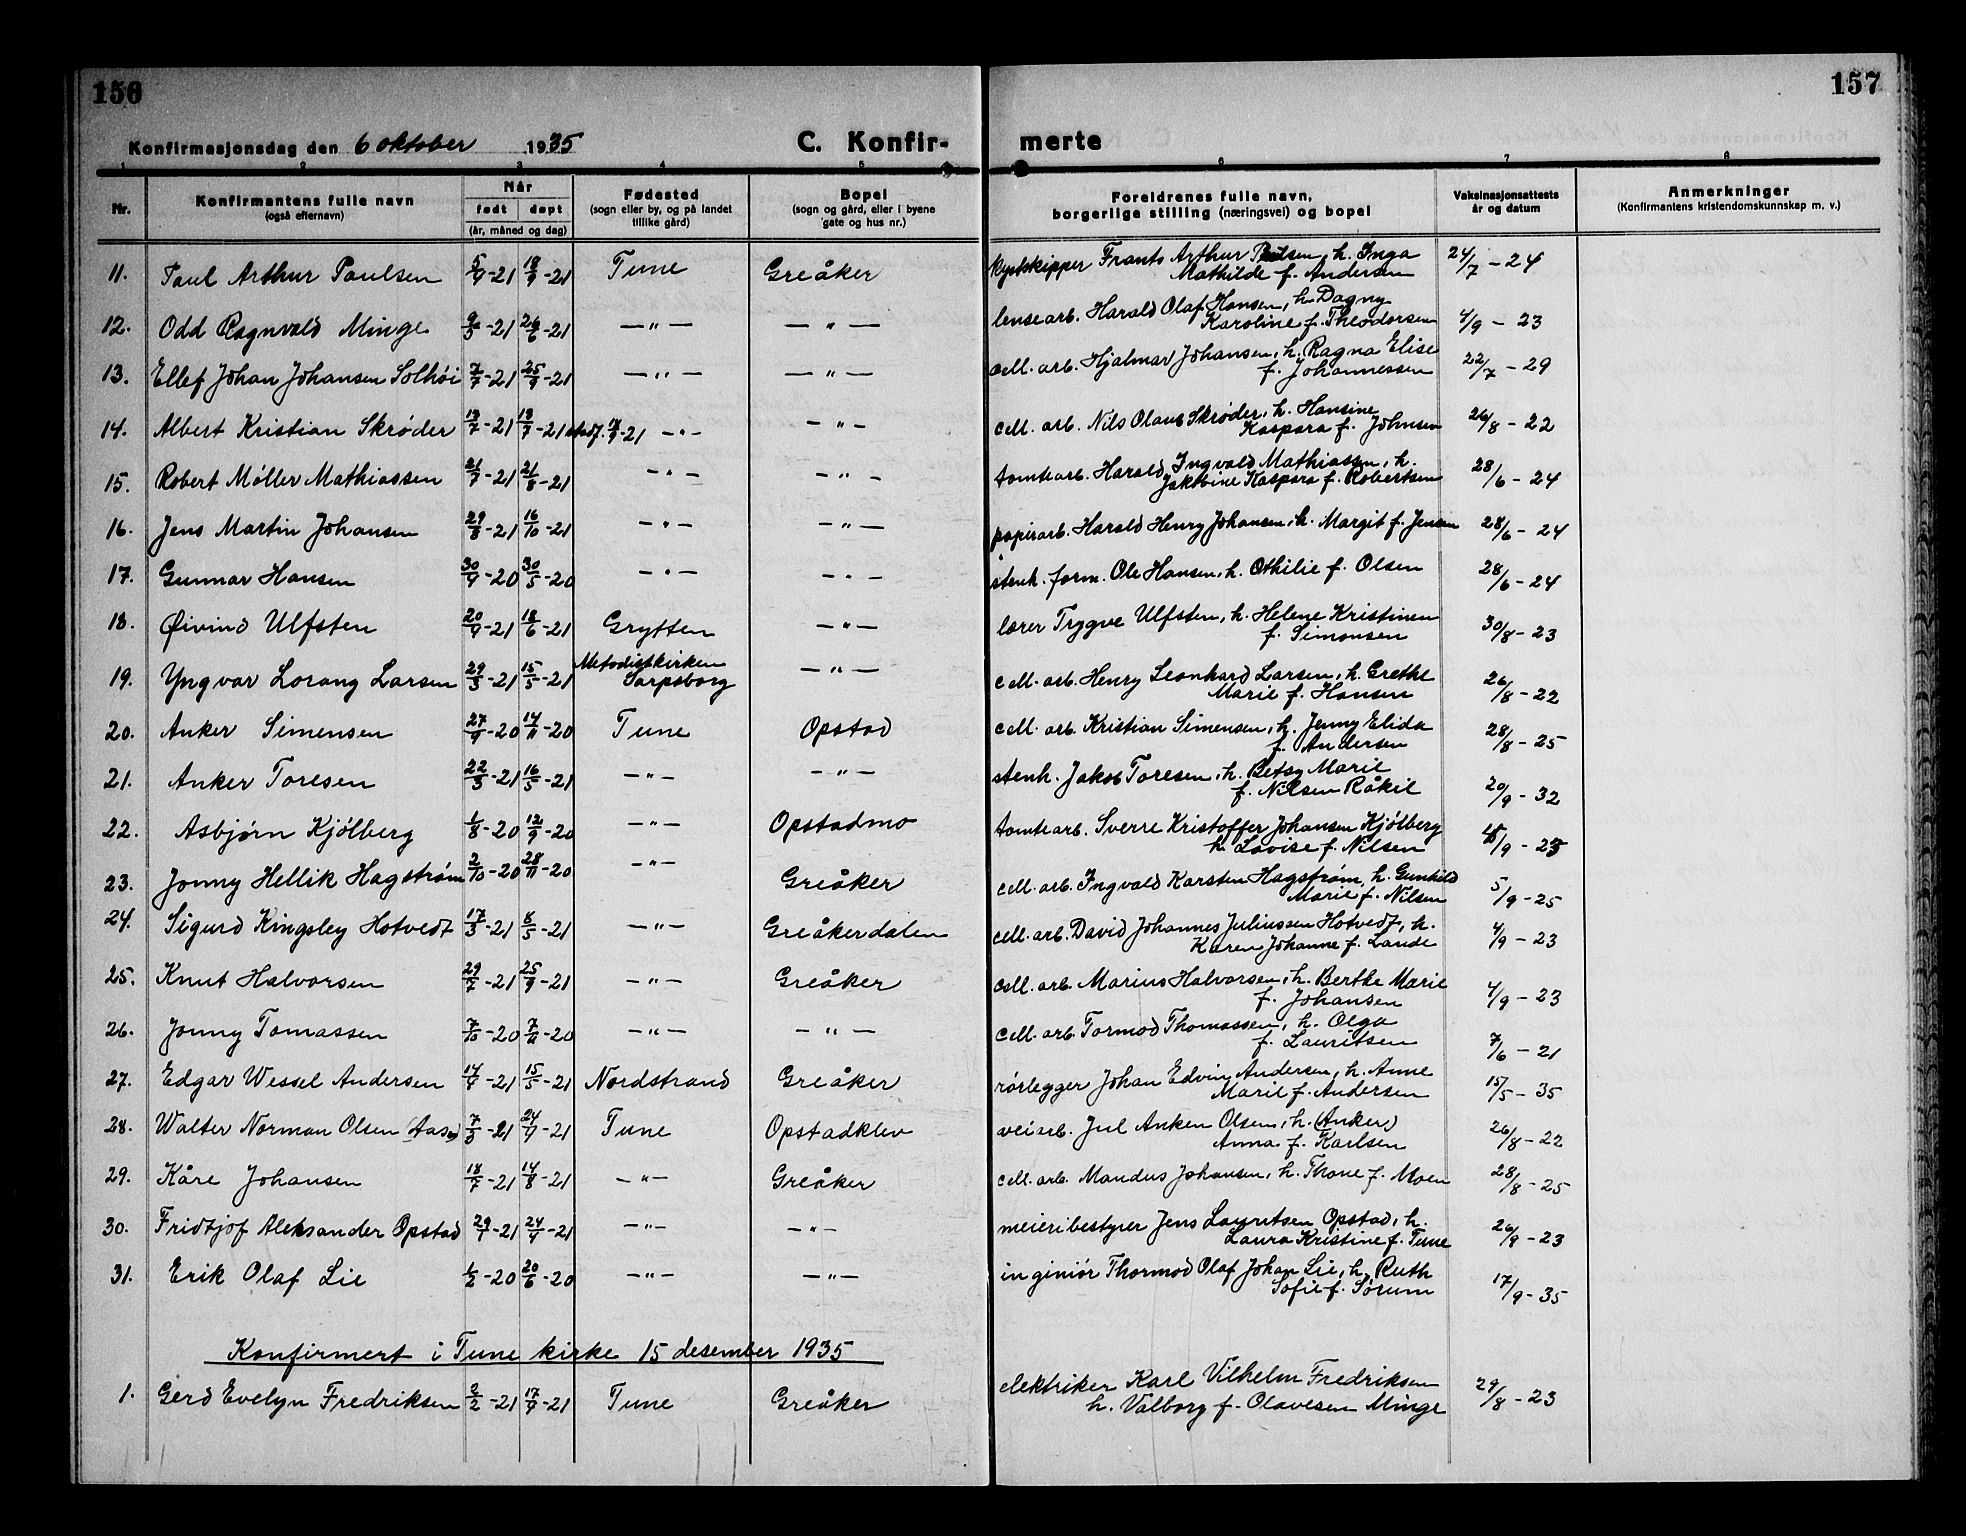 156
157
Konfirmasjonsdag den 6 oktober 1935
C. Konfir-
merte
1 2 3 4 5
6 7 8
Nr.
Konfirmantens fulle navn
(også efternavn)
Når
født døpt
(år, måned og dag)
Fødested
(sogn eller by, og på landet
tillike gård)
Bopel
(sogn og gård, eller i byene
gate og hus nr.)
Foreldrenes fulle navn,
borgerlige stilling (næringsvei) og bopel
Vaksinasjonsattests
år og datum
Anmerkninger
(Konfirmantens kristendomskunnskap m. v.)
11. Paul Arthur Paulsen 18/9-21 Tune Greåker kystskipper Frants Arthur Paulsen, h. Inga 24/7-24
Mathilde f. Andersen
12. Odd Ragnvald Minge 26/6-21 —"— —"— lensearb. Harald Olaf Hansen, h. Dagny 4/9-23
Karoline f. Theodorsen
13. Ellef Johan Johansen Solhöi 7/7-21 25/9-21 —"— —"— cell. arb. Hjalmar Johansen, h. Ragna Elise 22/7-29
f. Johannessen
14. Albert Kristian Skrøder —"— —"— cell. arb. Nils Olaus Skrøder, h. Hansine 26/8-22
Kaspara f. Johnsen
15. Robert Møller Mathiassen 21/7-21 21/8-21 —"— —"— tomtearb. Harald Ingvald Mathiassen, h. 28/6-24
Jakobine Kaspara f. Robertsen
16. Jens Martin Johansen 29/8-21 16/10-21 —"— —"— papirarb. Harald Henry Johansen, h. Margit f. Jensen 28/6-24
17. Gunnar Hansen 30/5-20 —"— —"— stenh. form. Ole Hansen, h. Othilie f. Olsen 28/6-24
18. Øivind Ulfsten 18/6-21 Grytten —"— lærer Trygve Ulfsten, h. Helene Kristinen 30/8-23
f. Simonsen
19. Yngvar Lorang Larsen 29/3-21 15/5-21 Metodistkirken —"— cell. arb. Henry Leonhard Larsen, h. Grethe 26/8-22
Sarpsborg
Marie f. Hansen
20. Anker Simensen 27/9-20 14/11-20 Tune Opstad cell. arb. Kristian Simensen, h. Jenny Elida 28/8-25
f. Andersen
21. Anker Toresen 22/3-21 16/5-21 —"— —"— stenh. Jakob Toresen, h. Betsy Marie 20/9-32
f. Nilsen Råkil
22. Asbjørn Kjölberg 1/8-20 12/9-20 —"— Opstadmo tomtearb. Sverre Kristoffer Johansen Kjölberg
h. Lovise f. Nilsen
23. Jonny Hellik Hagstrøm 2/10-20 28/11-20 —"— Greåker cell. arb. Ingvald Karsten Hagstrøm, h. Gunhild 5/9-25
Marie f. Nilsen
24. Sigurd Kingsley Hotvedt 17/3-21 8/5-21 —"— Greåkerdalen cell. arb. David Johannes Juliussen Hotvedt, h. 4/9-23
Karen Johanne f. Lande
25. Knut Halvorsen 29/7-21 25/9-21 —"— Greåker cell. arb. Marius Halvorsen, h. Berthe Marie 4/9-23
f. Johansen
26. Jonny Tomassen 7/10-20 7/11-20 —"— —"— cell. arb. Tormod Thomassen, h. Olga 7/6-21
f. Lauritsen
27. Edgar Wessel Andersen 14/4-21 15/5-21 Nordstrand Greåker rörlegger Johan Edvin Andersen, h. Anne 15/5-35
Marie f. Andersen
28. Walter Norman Olsen 7/3-21 24/4-21 Tune Opstadklev veiarb. Jul Anken Olsen, h. (Anker) 26/8-22
Anna f. Karlsen
29. Kåre Johansen 18/7-21 14/8-21 —"— Greåker cell. arb. Mandus Johansen, h. Thone f. Moen 28/8-25
30. Fridtjof Aleksander Opstad 29/1-21 24/4-21 —"— —"— meieribestyrer Jens Lauritsen Opstad, h. 26/9-23
Laura Kristine f. Tune
31. Erik Olaf Lie 1/2-20 20/6-20 —"— —"— ingeniör Thormod Olaf Johan Lie, h. Ruth 17/9-35
Sofie f. Sörum
Konfirmert i Tune kirke 15 desember 1935
1. Gerd Evelyn Fredriksen 2/2-21 17/4-21 Tune Greåker elektriker Karl Vilhelm Fredriksen 29/8-23
h. Valborg f. Olavesen Minge